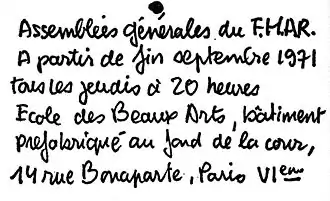 Assemblées générales du F.H.A.R.
A partir de fin septembre 1971
tous les jeudis à 20 heures
Ecole des Beaux Arts, bâtiment
préfabriqué au fond de la cour,
14 rue Bonaparte, Paris VIème